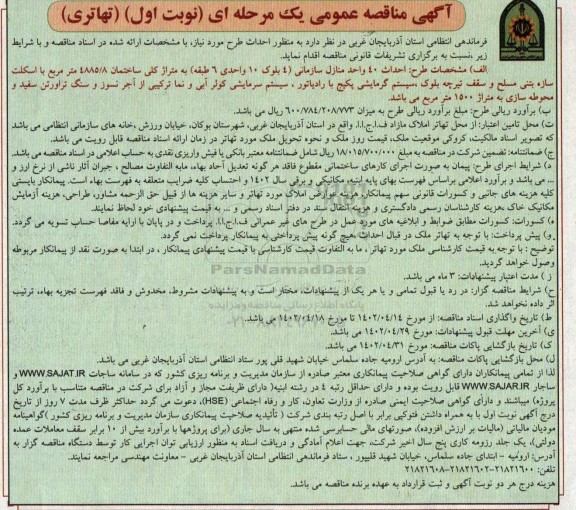 آگهی مناقصه عمومی یک مرحله ای (نوبت اول) (تهاتری)
فرماندهی انتظامی استان آذربایجان غربی در نظر دارد به منظور احداث طرح مورد نیاز، با مشخصات ارائه شده در اسناد مناقصه و با شرایط
زیر ،نسبت به برگزاری تشریفات قانونی مناقصه اقدام نماید.
الف) مشخصات طرح: احداث ۴۰ واحد منازل سازمانی (۴ بلوک ۱۰ واحدی ۶ طبقه) به متراژ کلی ساختمان ۴۸۸۵/۸ متر مربع با اسکلت
سازه بتنی مسلح و سقف تیرچه بلوک ،سیستم گرمایشی پکیج با رادیاتور ، سیستم سرمایشی کولر آبی و نما ترکیبی از آجر نسوز و سنگ تراورتن سفید و
محوطه سازی به متراژ ۱۵۰۰ متر مربع می باشد.
ب) برآورد ریالی طرح: مبلغ برآورد ریالی طرح به میزان ۶۰۰/۷۸۴/۲۰۸/۷۷۳ ریال می باشد.
ت) محل تامین اعتبار: از محل تهاتر املاک مازاد ف.ا.ج.ا.ا. واقع در استان آذربایجان غربی، شهرستان بوکان، خیابان ورزش ،خانه های سازمانی انتظامی می باشد
که تصویر اسناد مالکیت، کروکی موقعیت ملک، قیمت روز ملک و نحوه تحویل ملک مورد تهاتر در زمان ارائه اسناد مناقصه قابل رویت می باشد.
ج) ضمانتنامه: تضمین شرکت در مناقصه به مبلغ ۱۸/۰۱۵/۷۰۰/۰۰۰ ریال شامل ضمانتنامه معتبر بانکی یا فیش واریزی نقدی به حساب اعلامی در اسناد مناقصه می باشد.
د) شرایط اجرای طرح: پیمان به صورت اجرای کارهای ساختمانی مقطوع فاقد هر گونه تعدیل آحاد بهاء، مابه التفاوت مصالح ، جبران آثار ناشی از نرخ ارز و
... می باشد و برآورد اعلامی براساس فهرستهای بهای پایه ابنیه، مکانیکی و برقی سال ۱۴۰۲ و احتساب کلیه ضرایب متعلقه به فهرست بهاء است. پیمانکار بایستی
کلیه هزینه های جانبی و کسورات قانونی سهم پیمانکار املاک مورد تهاتر و سایر هزینه ها از قبیل حق الزحمه مشاوره، طراحی، هزینه آزمایش
مکانیک خاک ،هزینه کارشناسان رسمی دادگستری و هزینه انتقال سند در دفتر اسناد رسمی و... به قیمت پیشنهادی خود لحاظ نمایند.
ه) کسورات: کسورات مطابق ضوابط و ابلاغیه های مورد عمل در طرح های غیر عمرانی ف.ا.ج.ا.ا. پرداخت و در پایان با ارایه مفاصا حساب تسویه می گردد.
و) پیش پرداخت: با توجه به تهاتر ملک در قبال احداث ،هیچ گونه پیش پرداختی به پیمانکار پرداخت نمی گردد.
توضیح : با توجه به قیمت کارشناسی ملک مورد تهاتر ، ما به التفاوت قیمت کارشناسی با قیمت پیشنهادی پیمانکار ، در ابتدا به صورت نقد از پیمانکار مربوطه
وصول خواهد گردید.
ز ) مدت اعتبار پیشنهادات: ۳ ماه می باشد.
ح) شرایط مناقصه گزار: در رد یا قبول تمامی و یا هر یک از پیشنهادات، مختار است و به پیشنهادات مشروط، مخدوش و فاقد فهرست تجزیه بهاء، ترتیب
اثر داده نخواهد شد.
ط) تاریخ واگذاری اسناد مناقصه: از مورخ ۱۴۰۲/۰۴/۱۴ تا مورخ ۱۴۰۲/۰۴/۱۸ می باشد.
ی) آخرین مهلت قبول پیشنهادات: مورخ ۱۴۰۲/۰۴/۲۹ می باشد.
ک) تاریخ بازگشایی پاکات مناقصه: مورخ ۱۴۰۲/۰۴/۳۱ می باشد.
ل) محل بازگشایی پاکات مناقصه: به آدرس ارومیه جاده سلماس خیابان شهید قلی پور ستاد انتظامی استان آذربایجان غربی می باشد.
لذا از تمامی پیمانکاران دارای گواهی صلاحیت پیمانکاری معتبر صادره از سازمان مدیریت و برنامه ریزی کشور که در سامانه ساجات WWW.SAJAT.IR و
ساجار WWW.SAJAR.IR قابل رویت بوده و دارای حداقل رتبه ۴ در رشته ابنیه( دارای ظرفیت مجاز و آزاد برای شرکت در مناقصه متناسب با برآورد کل
پروژه) میباشند و دارای گواهی صلاحیت ایمنی صادره از وزارت تعاون، کار و رفاه اجتماعی (HSE)، دعوت می گردد حداکثر ظرف مدت ۷ روز از تاریخ
درج آگهی نوبت اول با به همراه داشتن فتوکپی برابر با اصل رتبه بندی شرکت ( تأئیدیه صلاحیت پیمانکاری سازمان مدیریت و برنامه ریزی کشور )گواهینامه
مودیان مالیاتی (مالیات بر ارزش افزوده)، صورتهای مالی حسابرسی شده منتهی به سال جاری (برای پروژهها با برآورد بیش از ۱۰ برابر سقف معاملات عمده
دولتی)، یک جلد رزومه کاری پنج سال اخیر شرکت، جهت اعلام آمادگی و دریافت اسناد به منظور ارزیابی توان اجرایی کار توسط دستگاه مناقصه گزار به
آدرس: ارومیه – ابتدای جاده سلماس، خیابان شهید قلیپور ، ستاد فرماندهی انتظامی استان آذربایجان غربی – معاونت مهندسی مراجعه نمایند.
تلفن: ۲۱۸۲۱۶۰۰-۲۱۸۲۱۶۰۲-۲۱۸۲۱۶۰۸
هزینه درج هر دو نوبت آگهی و ثبت قرارداد به عهده برنده مناقصه می باشد.
ParsNamadData